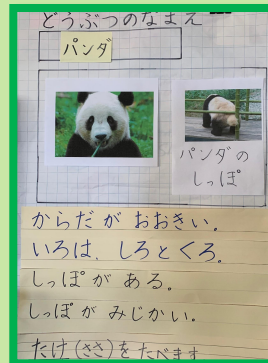 どうぶつのなまえ
パンダ
パンダの
しっぽ
からだが おおきい。
いろは、しろとくろ。
しっぽが ある。
しっぽが みじかい。
たけ(ささ)をたべます